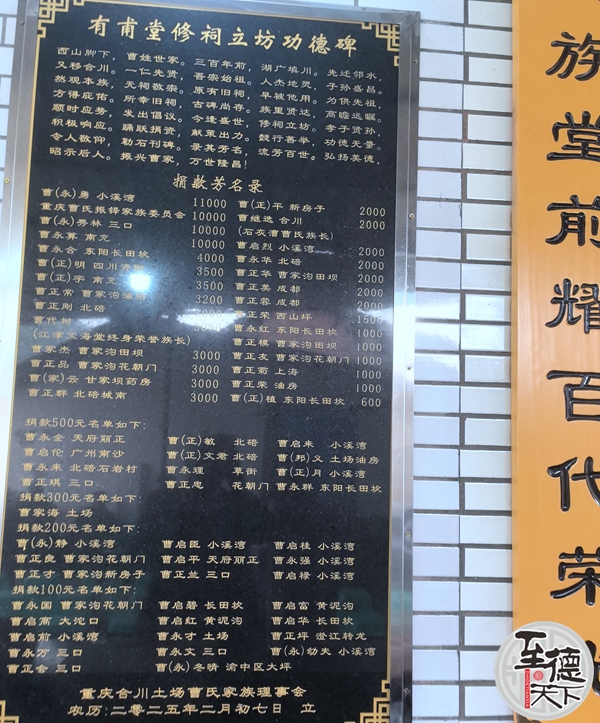 有甫堂修祠立坊功德碑
西山脚下，曹姓世家。三百年前，湖广填川。先迁邻水，
又移合川。一仁先贤，吾宗始祖。人杰地灵，子孙盛昌。
然观本族，无祠敬宗。原有旧祠，早被他用。为供先祖，
方得庇佑。所幸旧祠，古碑尚存。族里贤达，高瞻远瞩。
顺时应势，发出倡议。今逢盛世，修祠立坊。孝子贤孙，
积极响应。踊跃捐资，献策出力。兢行善举，功德无量。
令人敬仰，勒石刊碑。录其芳名，流芳百世。弘扬美德，
昭示后人。振兴曹家，万世隆昌！
捐款芳名录
曹(永)勇 小溪湾 11000
重庆曹氏振锋家族委员会 10000
曹(永)秀林 三口 10000
曹永算 南充 10000
曹永合 东阳长田坎 4000
曹(正)明 四川 3500
曹(正)字 南充 3500
曹正常 曹家沟油房 3200
曹正刚 北碚
曹代树
(江津文海堂终身荣誉族长)
曹家杰 曹家沟田坝 3000
曹正品 曹家沟花朝门 3000
曹(家)云 甘家坝药房 3000
曹正群 北碚城南 3000
曹(正)平 新房子 2000
曹继选 合川 2000
(石灰漕曹氏族长)
曹启烈 小溪湾 2000
曹永华 北碚 2000
曹正华 曹家沟田坝 2000
曹正美 成都 2000
曹正蓉 成都 2000
曹正荣 西山坪 1500
曹永红 东阳长田坎 1000
曹正模 曹家沟田坝 1000
曹正友 曹家沟花朝门 1000
曹正菊 上海 1000
曹正荣 油房 1000
曹(正)植 东阳长田坎 600
捐款500元名单如下:
曹永全 天府丽正 曹(正)敏 北碚 曹启来 小溪湾
曹启伦 广州南沙 曹(正)文君 北碚 曹(邦)义 土场油房
曹永来 北碚石岩村 曹永理 草街 曹(正)月 小溪湾
曹正琪 三口 曹正忠 花朝门 曹永群 东阳长田坎
捐款300元名单如下:
曹家海 土场
捐款200元名单如下:
曹(永)静 小溪湾 曹启臣 小溪湾 曹启桂 小溪湾
曹正良 曹家沟花朝门 曹启平 天府丽正 曹永强 小溪湾
曹正才 曹家沟新房子 曹正兰 三口 曹启禄 小溪湾
捐款100元名单如下:
曹永国 曹家沟花朝门 曹启碧 长田坎 曹启富 黄泥沟
曹启高 大沱口 曹启红 黄泥沟 曹启华 长田坎
曹启前 小溪湾 曹永才 土场 曹正坪 澄江转龙
曹永万 三口 曹永文 三口 曹(永)幼夫 小溪湾
曹正会 三口 曹(永)冬晴 渝中区大坪
重庆合川土场曹氏家族理事会
农历:二〇二五年二月初七日 立
族堂前耀百代荣
至德天下